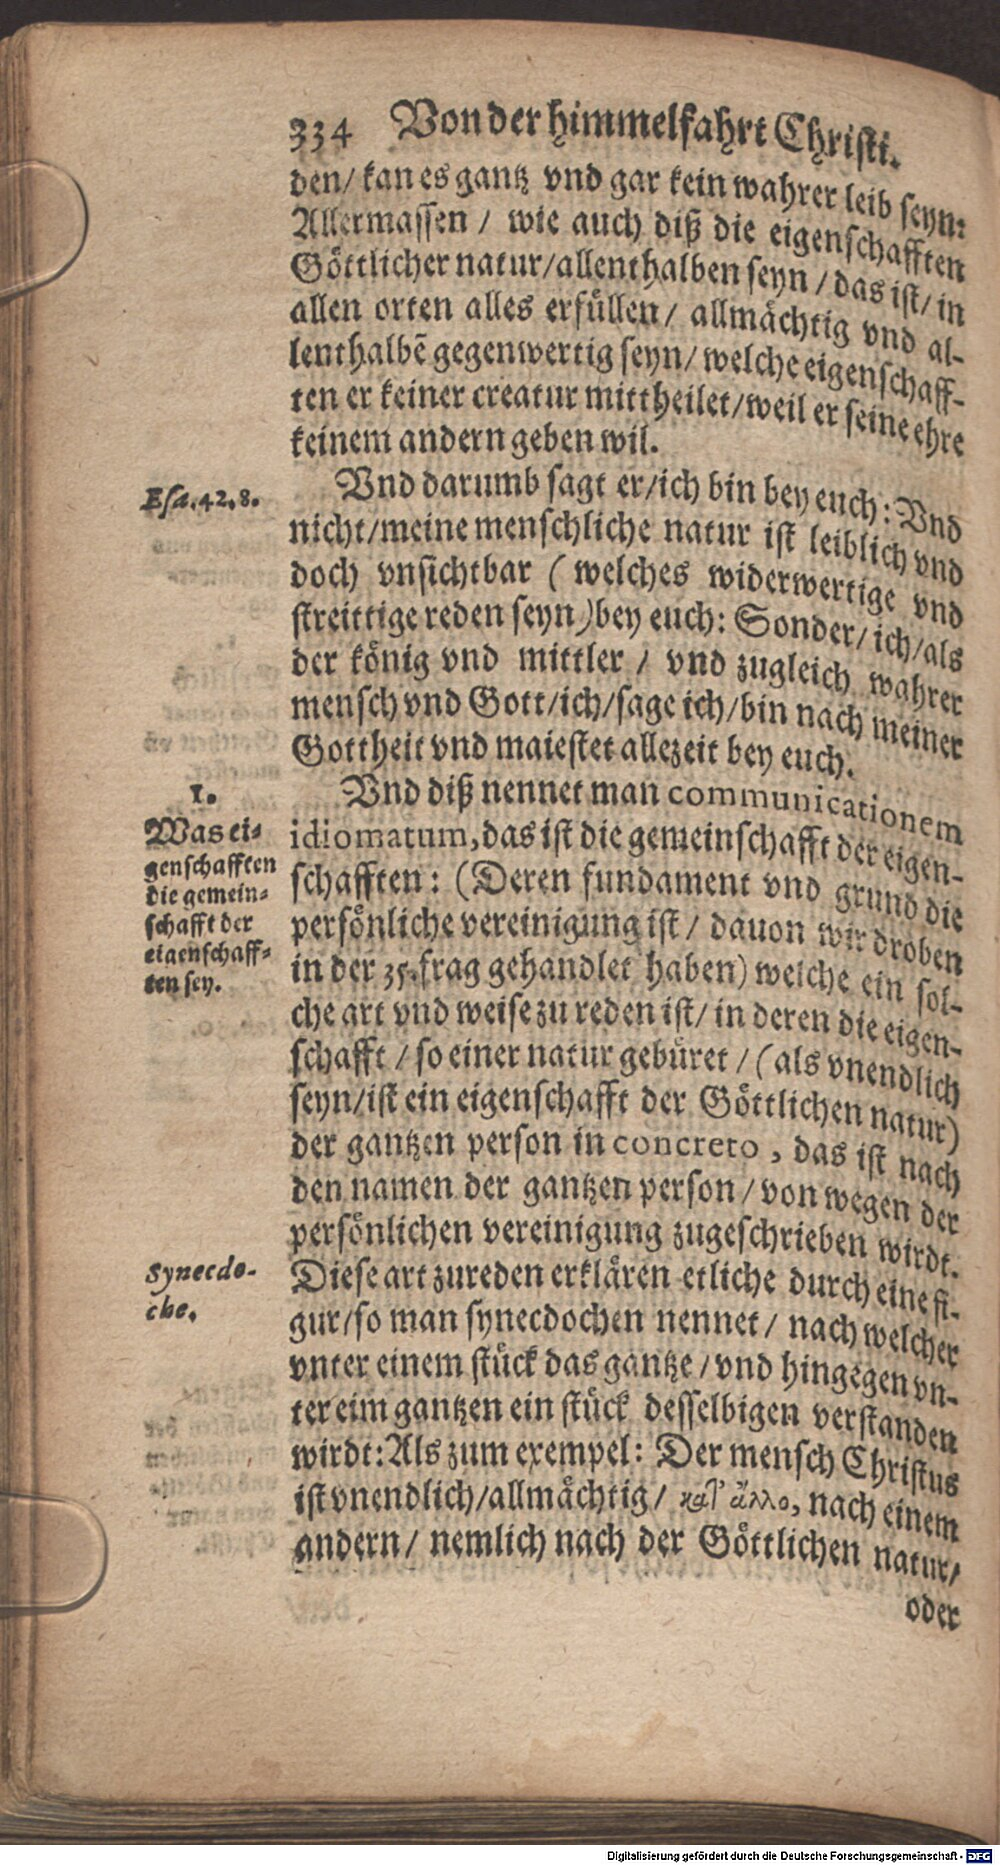 334 Von der himmelfahrt Christi.
den/ kan es gantz vnd gar kein wahrer leib seyn:
Allermassen / wie auch diß die eigenschafften
Göttlicher natur/allenthalben seyn / das ist/ in
allen orten alles erfüllen/ allmächtig vnd al-
lenthalbē gegenwertig seyn/ welche eigenschaff-
ten er keiner creatur mittheilet/weil er seine ehre
keinem andern geben wil.
Esa.42,8.
Vnd darumb sagt er/ich bin bey euch: Vnd
nicht/meine menschliche natur ist leiblich vnd
doch vnsichtbar ( welches widerwertige vnd
streittige reden seyn)bey euch: Sonder/ ich/als
der könig vnd mittler / vnd zugleich wahrer
mensch vnd Gott/ich/sage ich/bin nach meiner
Gottheit vnd maiestet allezeit bey euch.
1.
Was ei-
genschafften
die gemein-
schafft der
eigenschaff-
ten sey.
Vnd diß nennet man communicationem
idiomatum, das ist die gemeinschafft der eigen-
schafften: (Deren fundament vnd grund die
persönliche vereinigung ist / dauon wir droben
in der 35. frag gehandlet haben) welche ein sol-
che art vnd weise zu reden ist/ in deren die eigen-
schafft / so einer natur gebüret / (als vnendlich
seyn/ist ein eigenschafft der Göttlichen natur)
der gantzen person in concreto, das ist nach
den namen der gantzen person / von wegen der
persönlichen vereinigung zugeschrieben wirdt.
Synecdo-
che.
Diese art zureden erklären etliche durch eine fi-
gur/so man synecdochen nennet / nach welcher
vnter einem stück das gantze / vnd hingegen vn-
ter eim gantzen ein stück desselbigen verstanden
wirdt: Als zum exempel: Der mensch Christus
ist vnendlich/allmächtig/ κατ' ἄλλο, nach einem
andern/ nemlich nach der Göttlichen natur/
oder
Digitalisierung gefördert durch die Deutsche Forschungsgemeinschaft - DFG